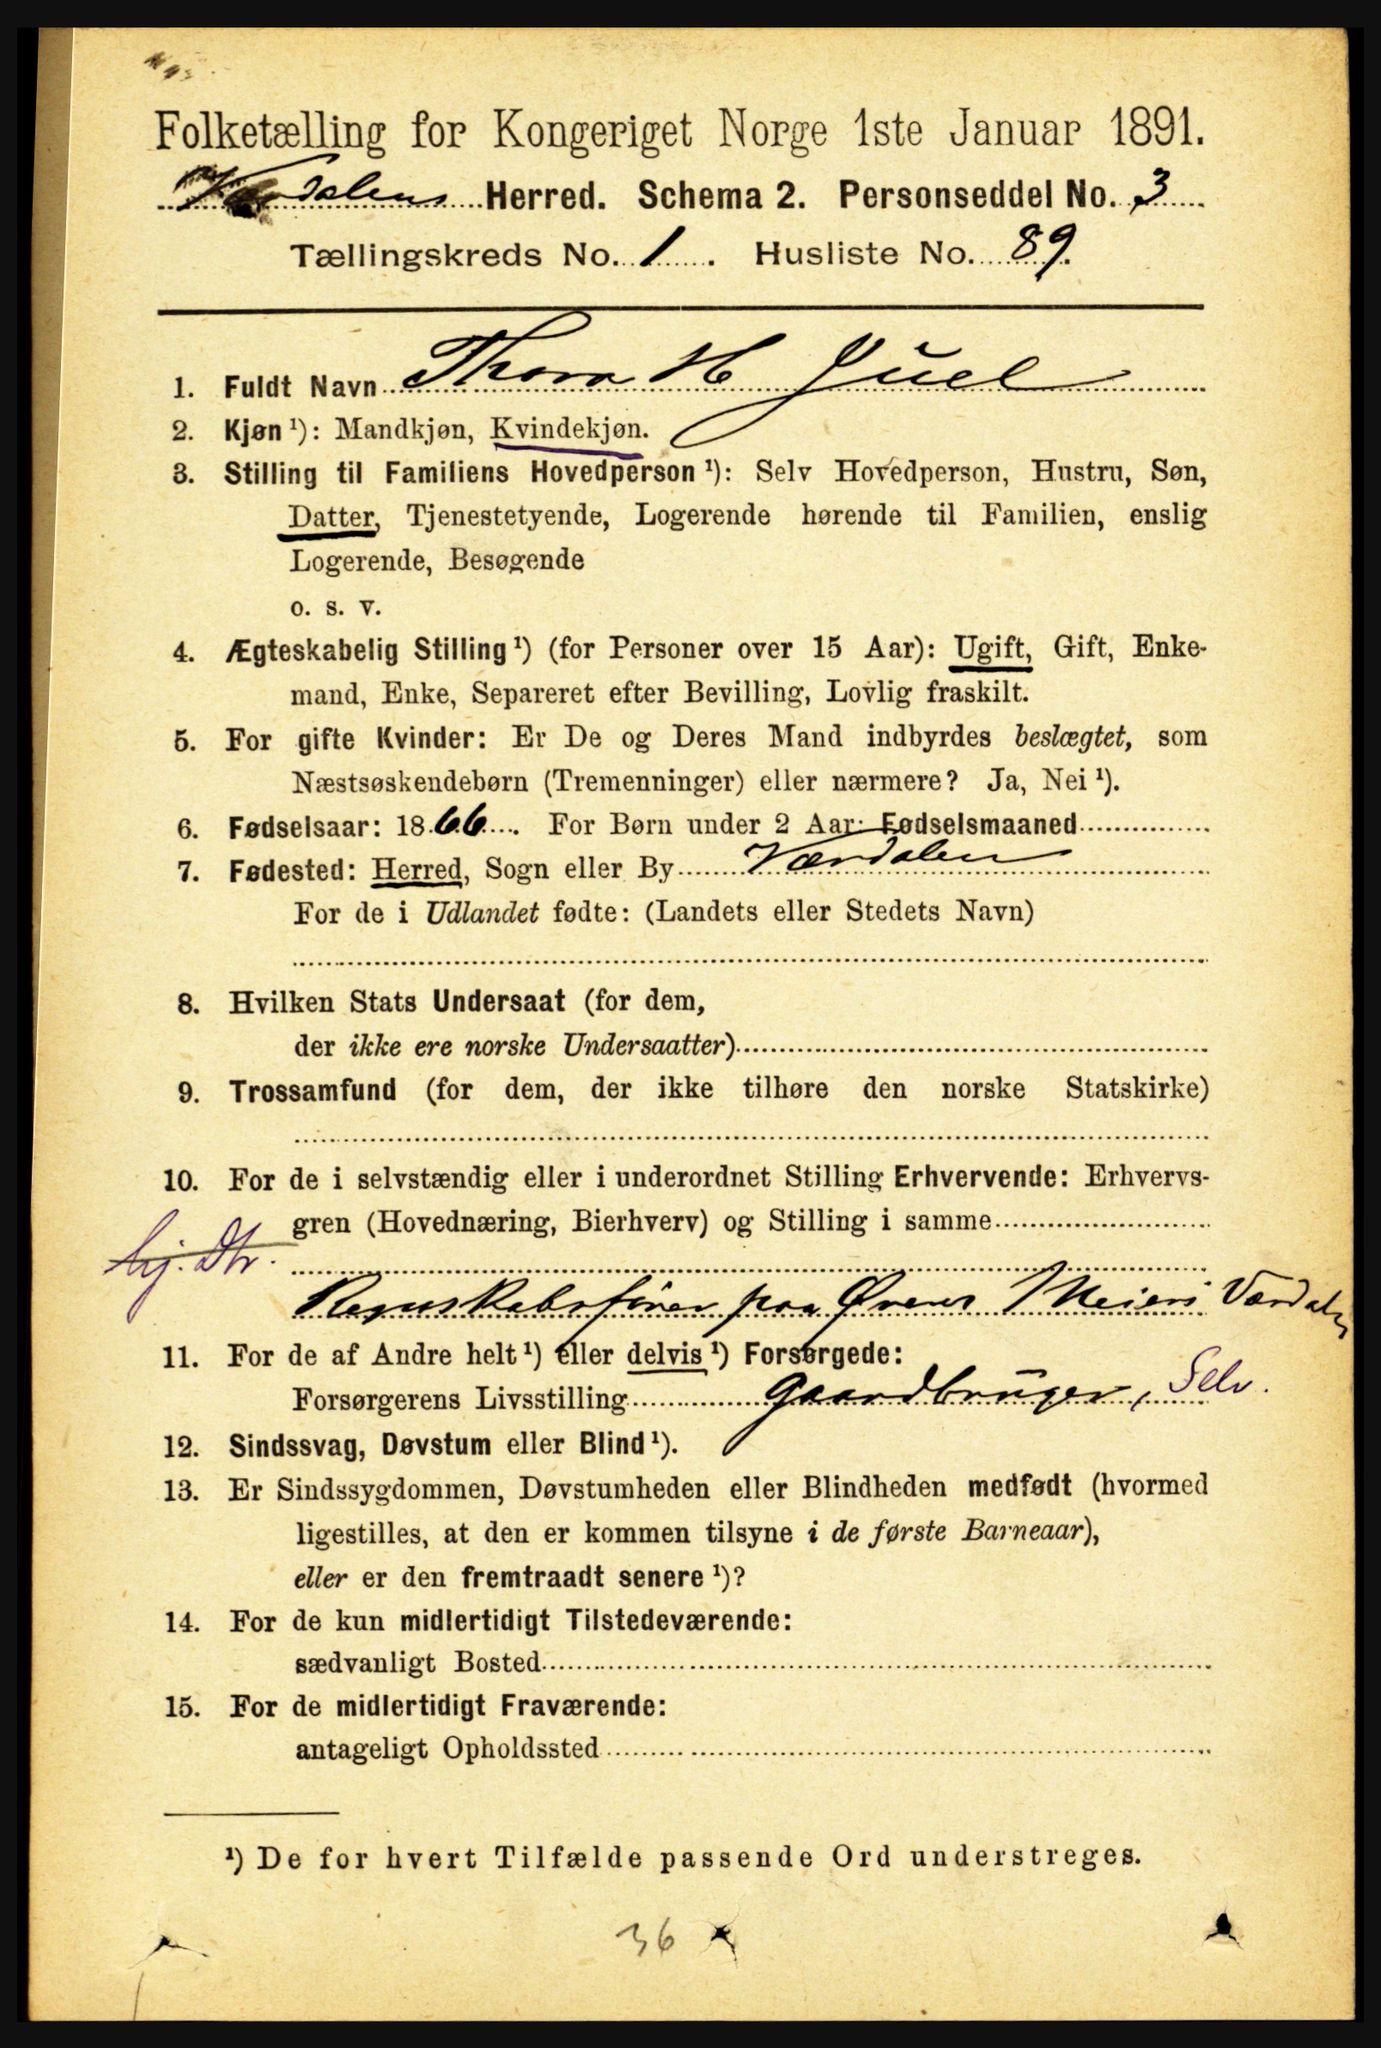 Folketælling for Kongeriget Norge 1ste Januar 1891.
Værdalens Herred. Schema 2. Personseddel No. 3
Tællingskreds No. 1. Husliste No. 89.
1. Fuldt Navn Thora H Juel
2. Kjøn ¹): Mandkjøn, Kvindekjøn.
3. Stilling til Familiens Hovedperson ¹): Selv Hovedperson, Hustru, Søn,
Datter, Tjenestetyende, Logerende hørende til Familien, enslig
Logerende, Besøgende
o. s. v.
4. Ægteskabelig Stilling ¹) (for Personer over 15 Aar): Ugift, Gift, Enke-
mand, Enke, Separeret efter Bevilling, Lovlig fraskilt.
5. For gifte Kvinder: Er De og Deres Mand indbyrdes beslægtet, som
Næstsøskendebørn (Tremenninger) eller nærmere? Ja, Nei ¹).
6. Fødselsaar: 1866. For Børn under 2 Aar: Fødselsmaaned
7. Fødested: Herred, Sogn eller By Værdalen
For de i Udlandet fødte: (Landets eller Stedets Navn)
8. Hvilken Stats Undersaat (for dem,
der ikke ere norske Undersaatter)
9. Trossamfund (for dem, der ikke tilhøre den norske Statskirke)
10. For de i selvstændig eller i underordnet Stilling Erhvervende: Erhvervs-
gren (Hovednæring, Bierhverv) og Stilling i samme
hj. Dtr.
Regnskabsfører paa Ørens Meieri Værdalen
11. For de af Andre helt ¹) eller delvis ¹) Forsørgede:
Forsørgerens Livsstilling Gaardbruger, Selv.
12. Sindssvag, Døvstum eller Blind ¹).
13. Er Sindssygdommen, Døvstumheden eller Blindheden medfødt (hvormed
ligestilles, at den er kommen tilsyne i de første Barneaar),
eller er den fremtraadt senere ¹)?
14. For de kun midlertidigt Tilstedeværende:
sædvanligt Bosted
15. For de midlertidigt Fraværende:
antageligt Opholdssted
¹) De for hvert Tilfælde passende Ord understreges.
36